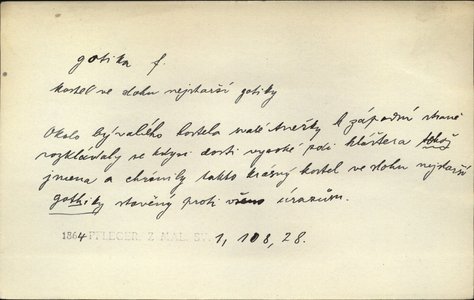 gotika f.
kostel ve slohu nejstarší gotiky
Okolo bývalého kostela malé k západní straně
rozkládaly se kdysi dosti vysoké zdi kláštera téhož
jména a chránily takto krásný kostel ve slohu nejstarší
gothiky stavěný proti všem úrazům.
1864 PFLEGER, Z MAL. SV. 1, 108, 28.